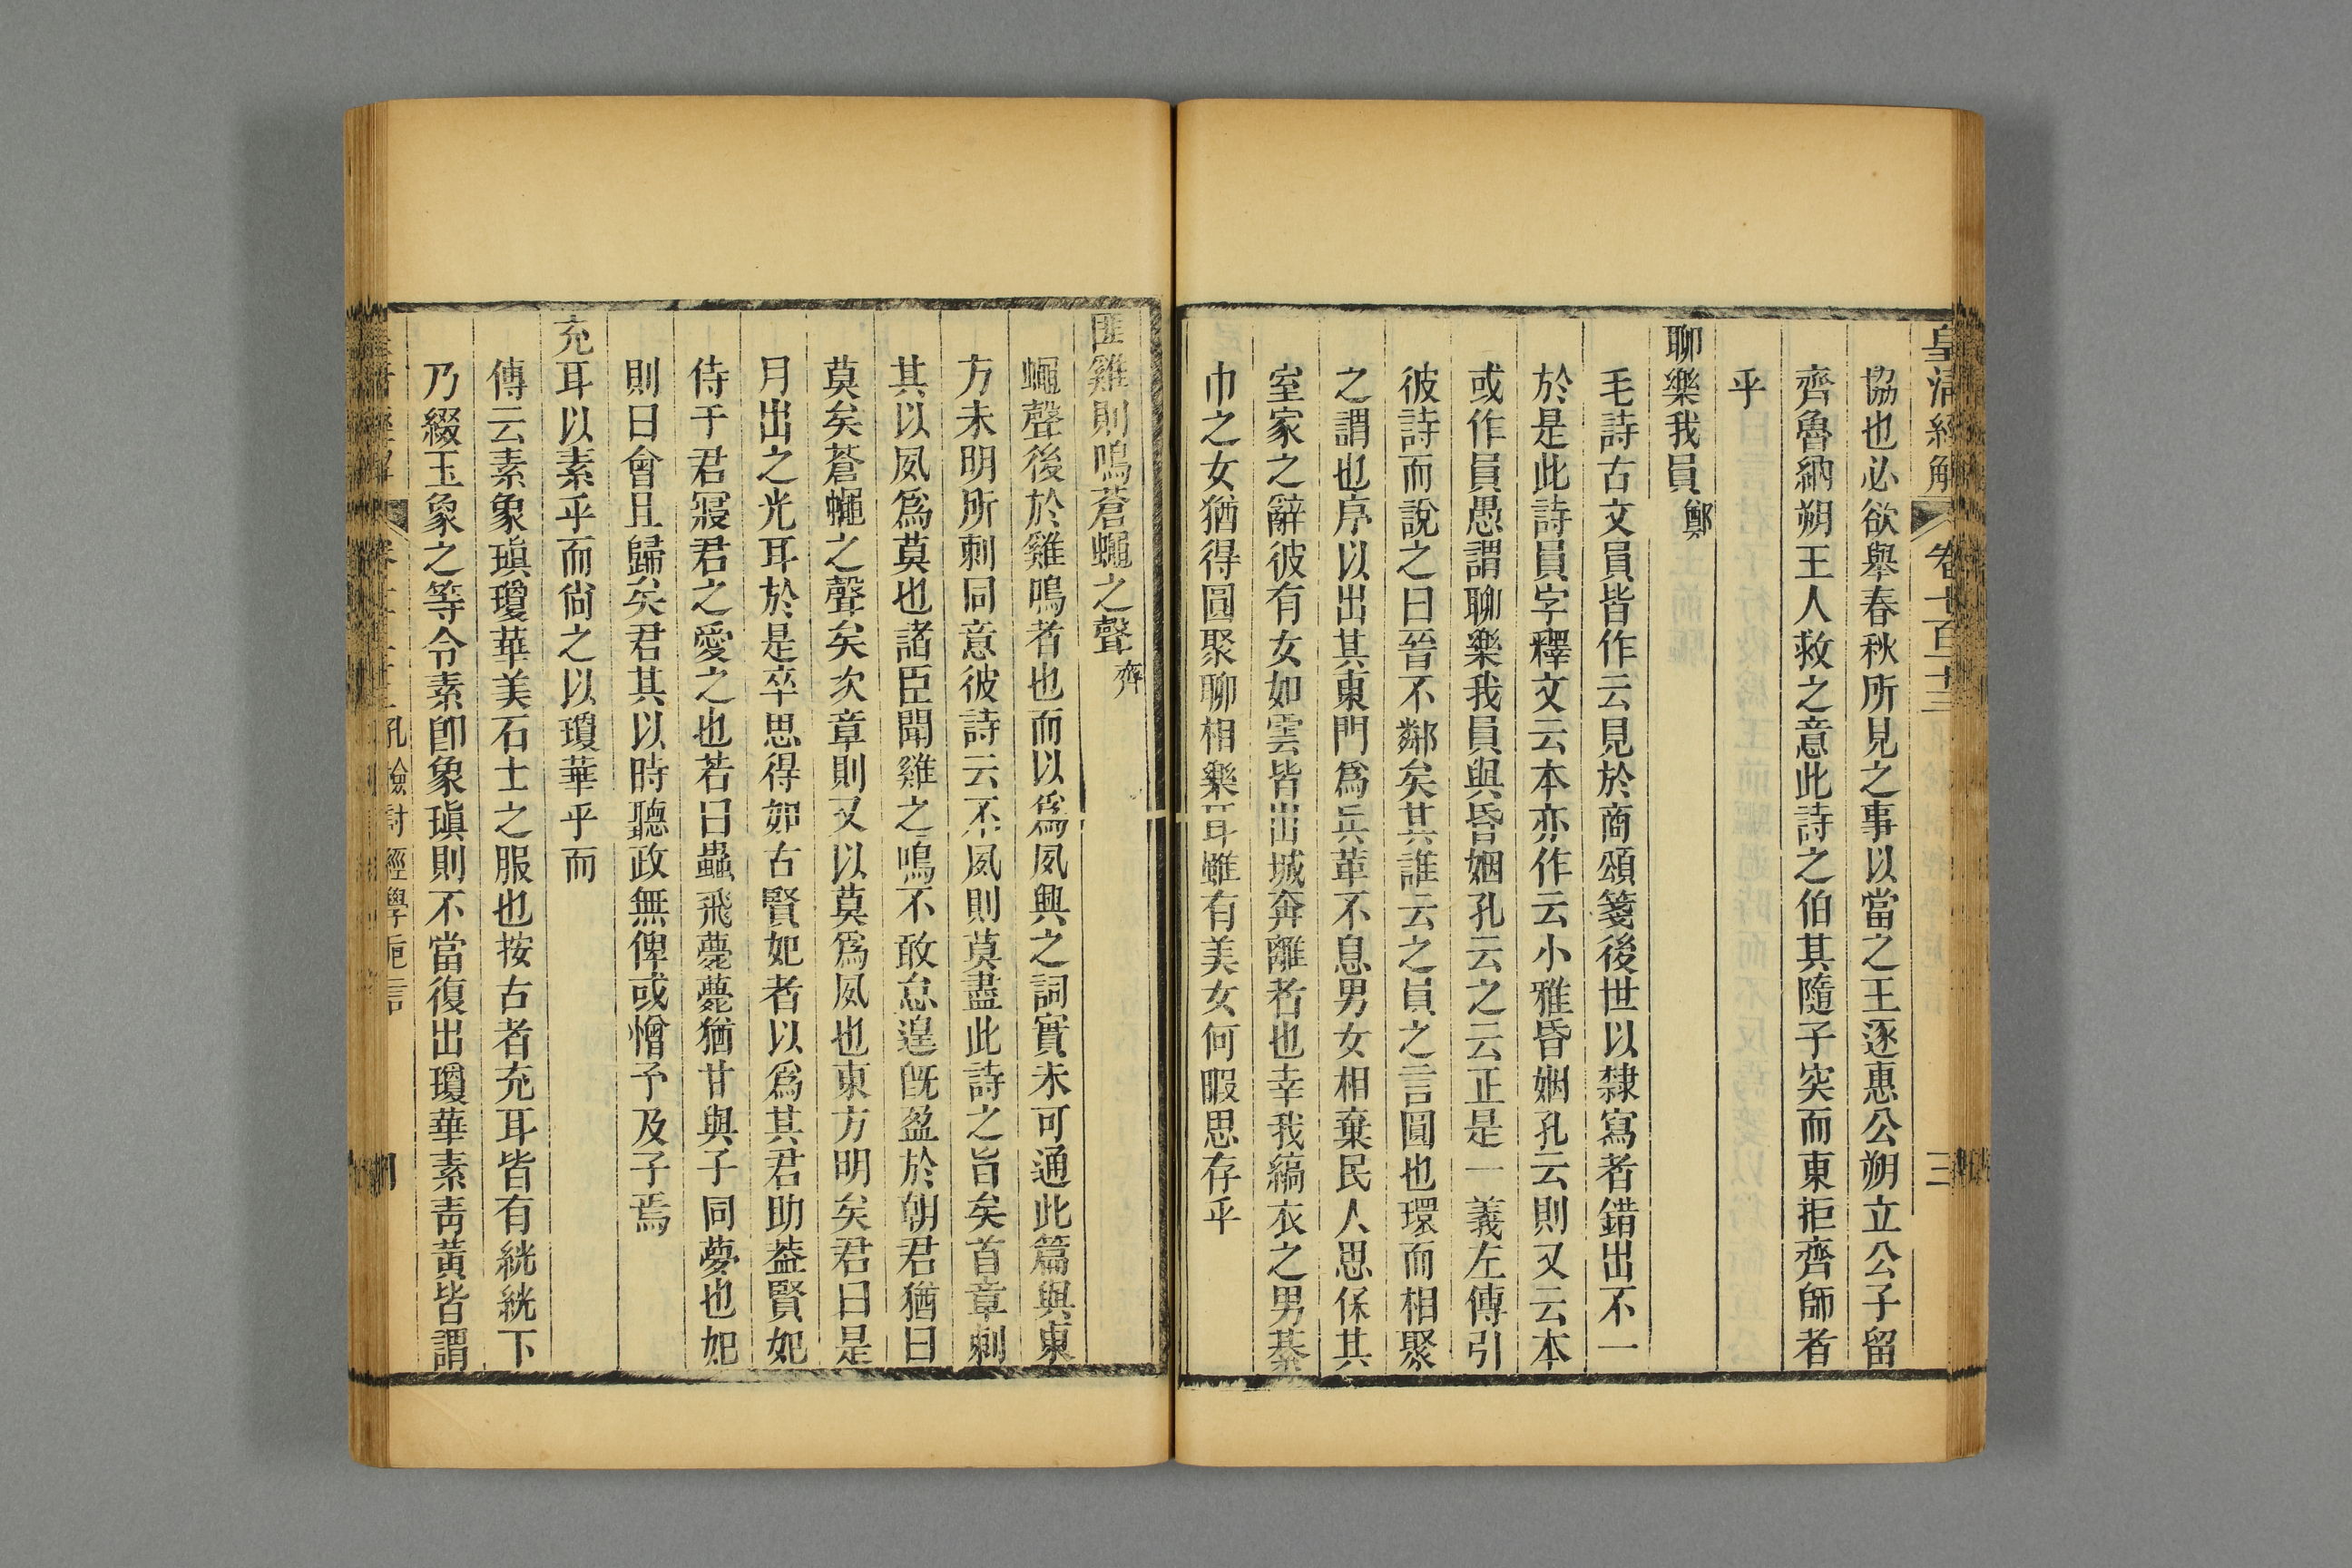 皇清經解 卷七百十三 三
協也必欲舉春秋所見之事以當之王逐惠公朔立公子留
齊魯納朔王人救之意此詩之伯其隨子突而東拒齊師者
乎
聊樂我員 鄭
毛詩古文員皆作云見於商頌箋後世以隸寫者錯出不一
於是此詩員字釋文云本亦作云小雅昏姻孔云則又云本
或作員愚謂聊樂我員與昏姻孔云之云正是一義左傳引
彼詩而說之曰晉不鄰矣其誰云之員之言圓也環而相聚
之謂也序以出其東門爲兵革不息男女相棄民人思保其
室家之辭彼有女如雲皆出城奔離者也幸我縞衣之男綦
巾之女猶得圓聚聊相樂耳雖有美女何暇思存乎
匪雞則鳴蒼蠅之聲 齊
蠅聲後於雞鳴者也而以爲夙興之詞實未可通此篇與東
方未明所刺同意彼詩云不夙則莫盡此詩之旨矣首章刺
其以夙爲莫也諸臣聞雞之鳴不敢怠遑旣盈於朝君猶曰
莫矣蒼蠅之聲矣次章則又以莫爲夙也東方明矣君曰是
月出之光耳於是卒思得如古賢妃者以爲其君助葢賢妃
侍于君寢君之愛之也若曰蟲飛薨薨猶甘與子同夢也妃
則曰會且歸矣君其以時聽政無俾或憎予及子焉
充耳以素乎而尙之以瓊華乎而
傳云素象瑱瓊華美石士之服也按古者充耳皆有紞紞下
乃綴玉象之等令素卽象瑱則不當復出瓊華素靑黃皆謂
孔檢討經學卮言